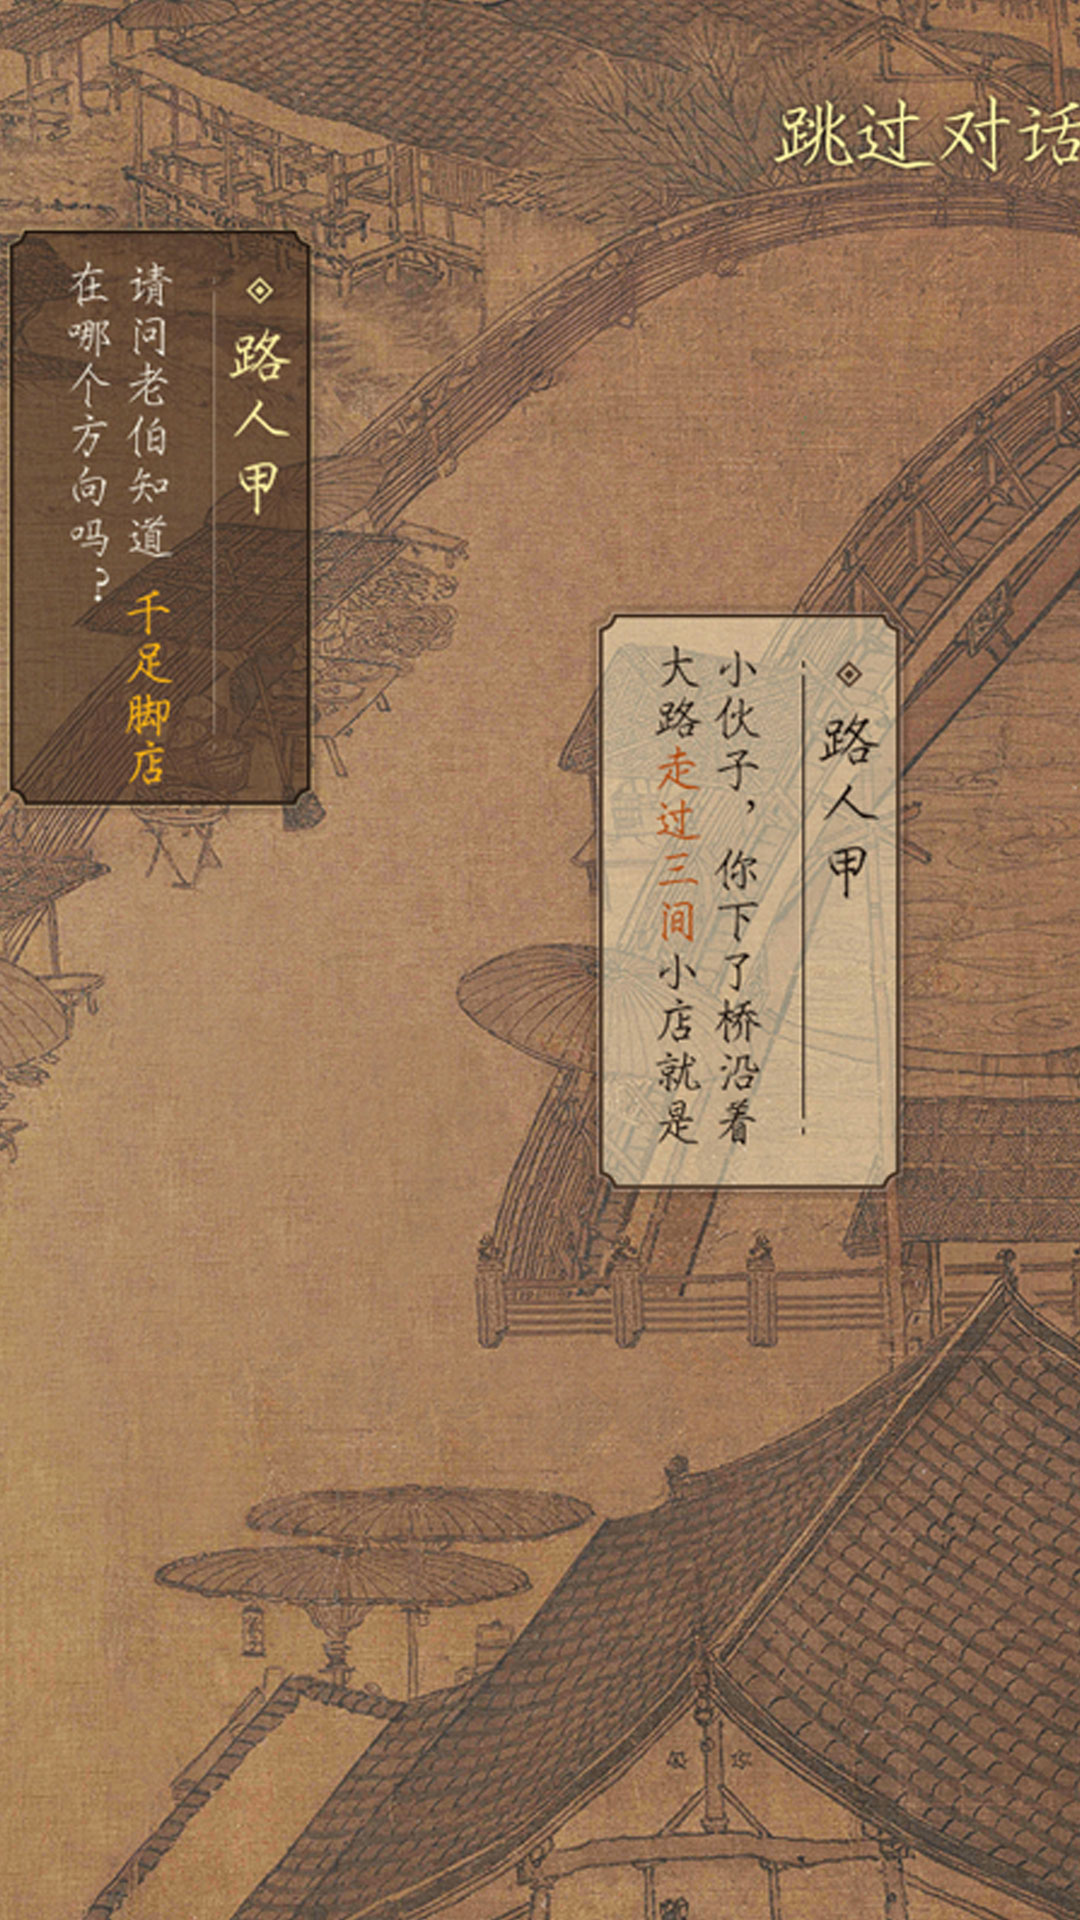 跳过对话
路人甲
请问老伯知道 千足脚店
在哪个方向吗？
路人甲
小伙子，你下了桥沿着
大路走过三间小店就是